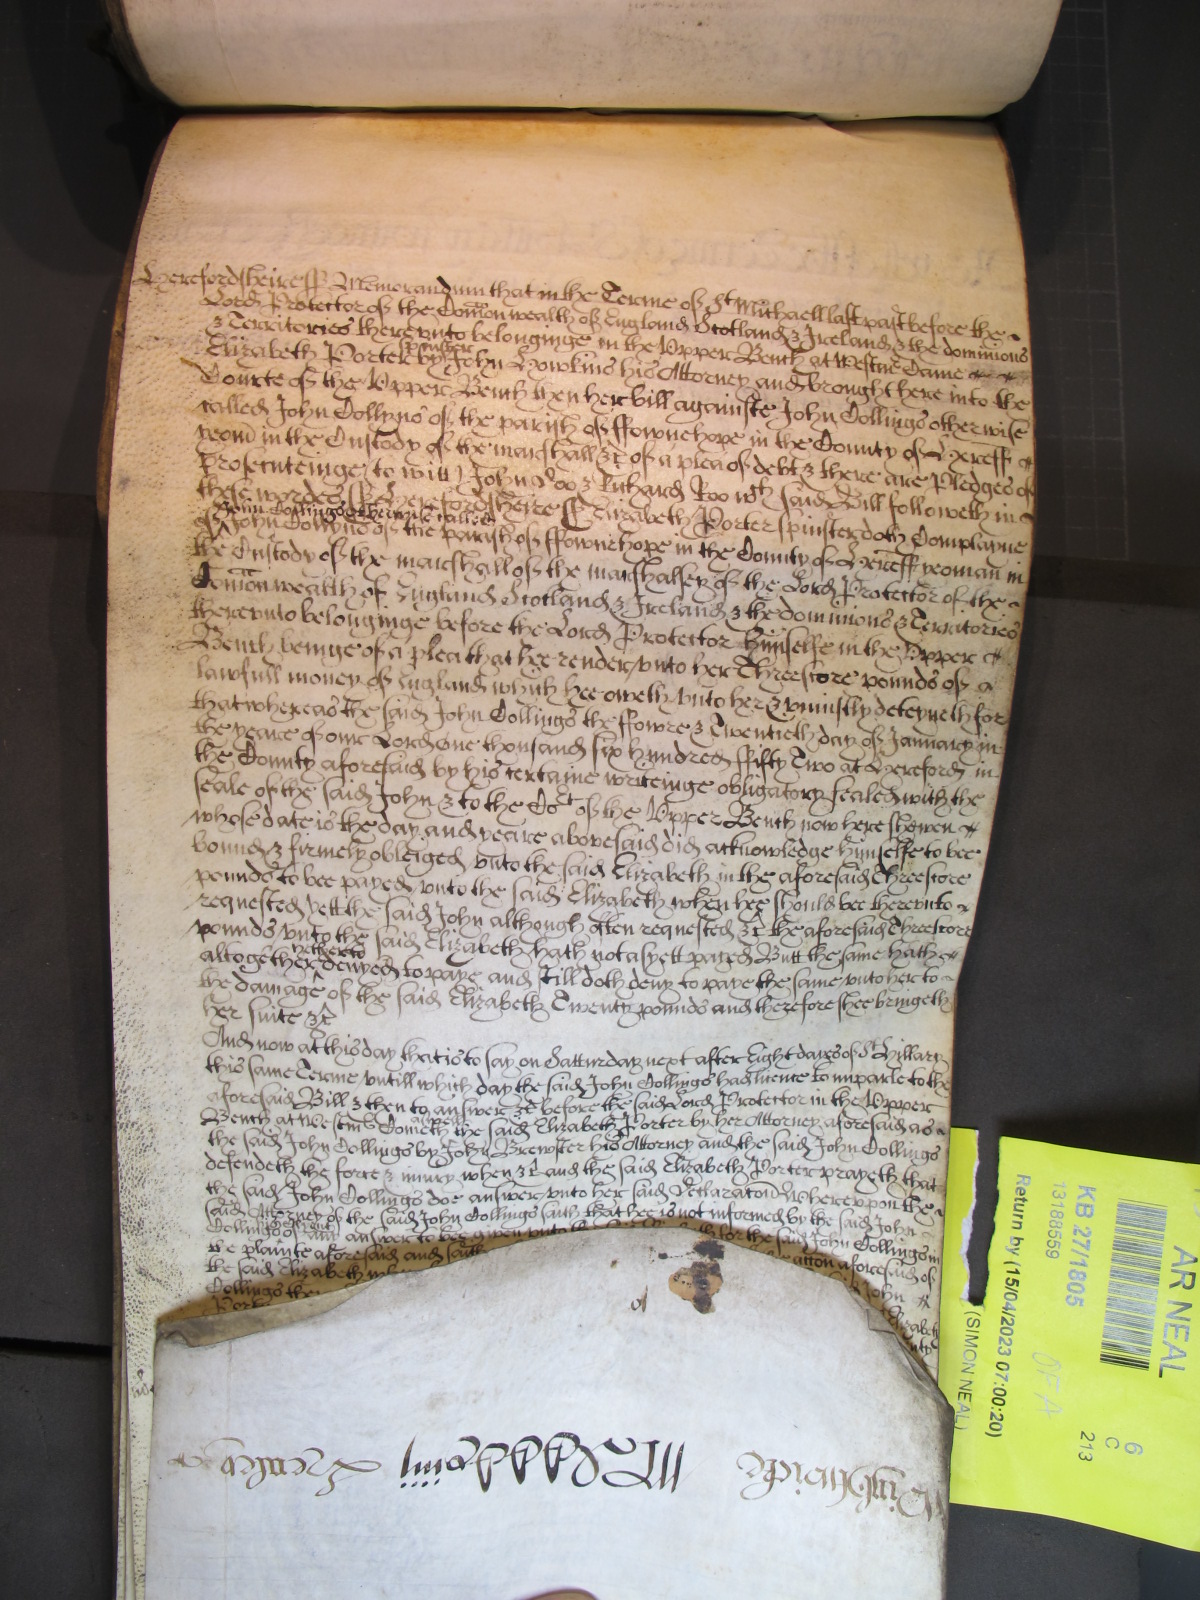 Herefordsheire ss Memorandum that in the Terme of St Michaell last past before the
Lord Protector of the Comon wealth of England Scotland & Ireland & the dominions
& Territories therevnto belonginge in the Vpper Bench at Westm Came
Elizabeth Porter spinster by John Howkins his Attorney and brought here into the
Courte of the Vpper Bench then her bill againste John Collings otherwise
called John Collyns of the parish of ffownehope in the County of Hereff
yeom in the Custody of the marshall &c of a plea of debt & there are Pledges of
prosecuteinge to witt John Doo & Richard Roo wch said Bill followeth in
these wordes ss Herefordsheire ss Elizabeth Porter spinster doth Complayne
of John Collings otherwise called John Collyns of the parish of ffownehope in the County of Hereff yeoman in
the Custody of the marshall of the marshalsey of the Lord Protector of the
Comon wealth of England Scotland & Ireland & the dominions & Territories
therevnto belonginge before the Lord Protector himselfe in the Vpper
Bench beinge of a plea that hee render vnto her Threescore pounds of
lawfull money of England which hee oweth vnto her & vniustly deteyneth for
that whereas the said John Collings the ffowre & Twentieth day of January in
the yeare of our Lord one thousand six hundred ffifty Two at Hereford in
the County aforesaid by his certaine writeinge obligatory sealed with the
seale of the said John & to the Cot of the Vpper Bench now here shewen
whose date is the day and yeare abovesaid did acknowledge himselfe to bee
bound & firmely obleiged vnto the said Elizabeth in the aforesaid Threescore
pounds to bee payed vnto the said Elizabeth when hee should bee therevnto
requested yett the said John although often requested &c the aforesaid Threescore
pounds vnto the said Elizabeth hath not as yett payed Butt the same hath
altogether hetherto denyed to paye and still doth deny to paye the same vnto her to
the damage of the said Elizabeth Twenty pounds and therefore shee bringeth
her suite &c
And now at this day that is to say on Satturday next after Eight dayes of St Hillary
this same Terme vntill which day the said John Collings had licence to imparle to the
aforesaid Bill & then to answer &c before the said Lord Protector in the Vpper
Bench at Westm Cometh the said Elizabeth Porter by her Attorney aforesaid as
the said John Collings by John Brewster his Attorney and the said John Collings
defendeth the force & iniury when &c and the said Elizabeth Porter prayeth that
the said John Collings doe answer vnto her said Declaration Wherevpon the
said Attorney of the said John Collings saith that hee is not informed by the said John
Collings of any answer to bee given vnto the for the said John Collings in
the plainte aforesaid and saith ation aforesaid of
the said Elizabeth John
Collings the Elizabeth
Porter
Hereford
KB 27/1805
13188559
Return by (15/04/2023 07:00:20)
(SIMON NEAL)
AR NEAL
6
C
213